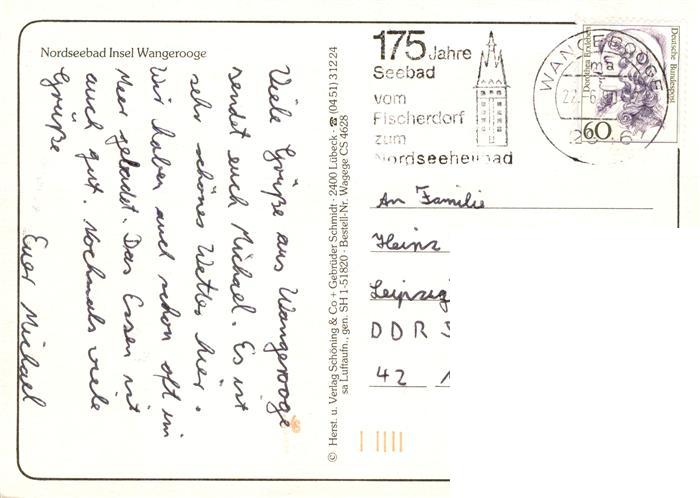 Nordseebad Insel Wangerooge
Viele Grüße aus Wangerooge
sendet euch Michael. Es ist
sehr schönes Wetter hier.
Wir haben auch schon oft im
Meer gebadet. Das Essen ist
auch gut. Nochmals viele
Grüße
Euer Michael
© Herst. u. Verlag Schöning & Co + Gebrüder Schmidt · 2400 Lübeck · ☎ (04 51) 3 12 24
sa Luftaufn., gen. SH 1-51820 · Bestell-Nr. Wagege CS 4628
175 Jahre
Seebad
vom
Fischerdorf
zum
Nordseeheilbad
WANGEROOGE
ma
22.-6.
Deutsche Bundespost
Dorothea Erxleben
60
An Familie
Heinz
Leipzig
DDR
42